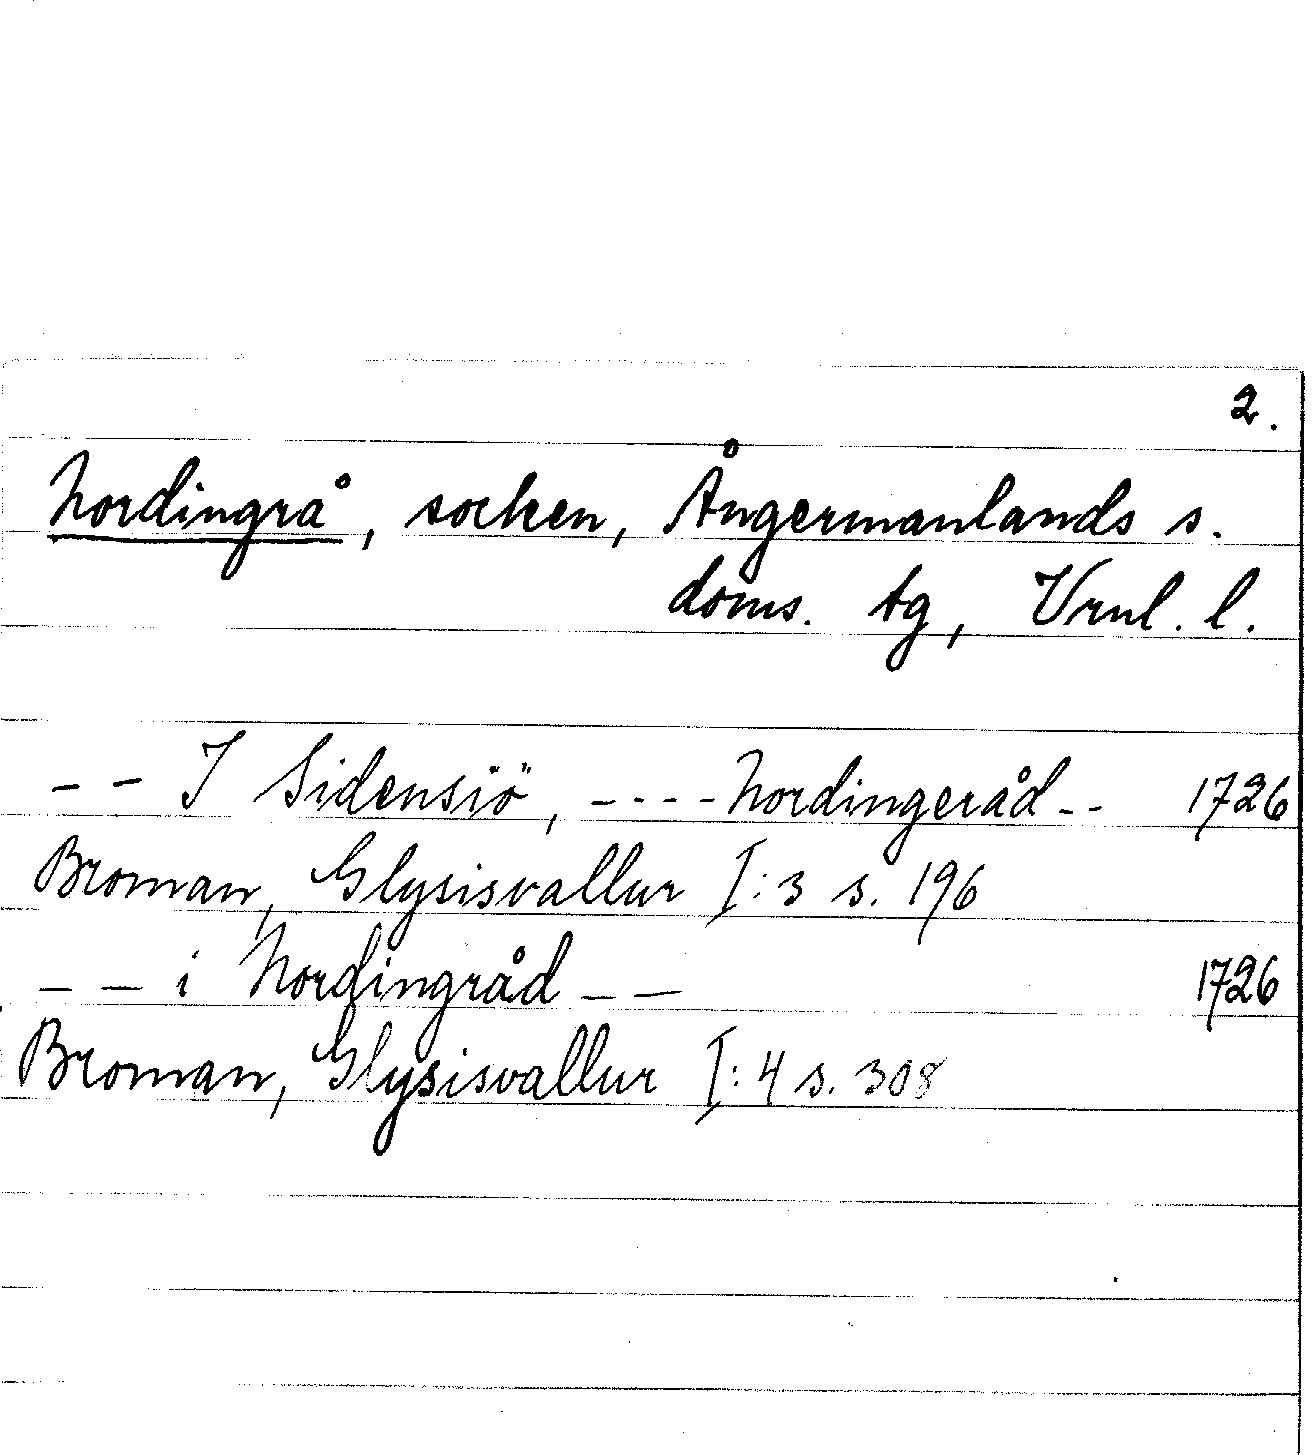 2.
Nordingrå, socken, Ångermanlands s.
doms. tg, Vrnl. l.
-- I Sidensiö, ---- Nordingeråd -- 1726
Broman, Glysisvallur I:3 s. 196
-- i Nordingråd -- 1726
Broman, Glysisvallur I:4 s. 308